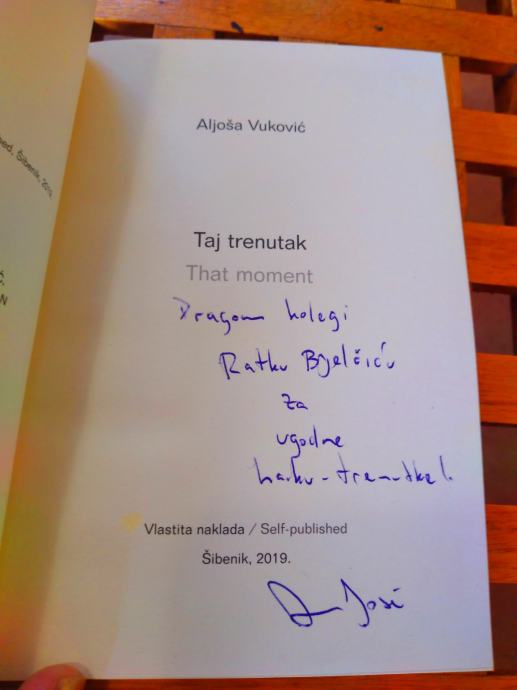 Aljoša Vuković
Taj trenutak
That moment
Dragom kolegi
Ratku Bjelčiću
za
ugodne
haiku-trenutke!
Vlastita naklada / Self-published
Šibenik, 2019.
Šibenik, 2019